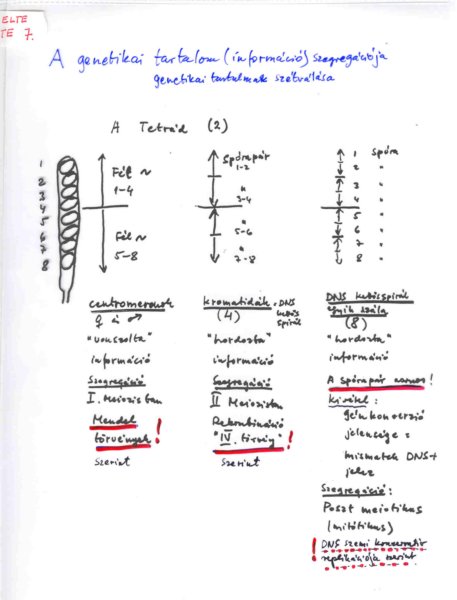 ELTE
TE 7.
A genetikai tartalom (információ) szegregációja
genetikai tartalmak szétválása
A Tetrád (2)
1
2
3
4
5
6
7
8
Fél ~
1-4
Fél ~
5-8
Spórapár
1-2
"
3-4
"
5-6
"
7-8
1 spóra
2 "
3 "
4 "
5 "
6 "
7 "
8 "
centromeronok
♀ és ♂
"vonszolta"
információ
Szegregáció
I. Meiozisban
Mendel
törvények!
szerint
kromatidák
(4)
DNS
kettős
spirál
"hordozta"
információ
Szegregáció
II Meiozisban
Rekombináció
"IV. törvény"!
szerint
DNS kettősspirál
egyik szála
(8)
"hordozta"
információ
A spórapár azonos!
Kivétel:
génkonverzió
jelensége:
mismatch DNS-t
jelez
Szegregáció:
Poszt meiotikus
(mitótikus)
! DNS szemi konzervatív
replikációja szerint